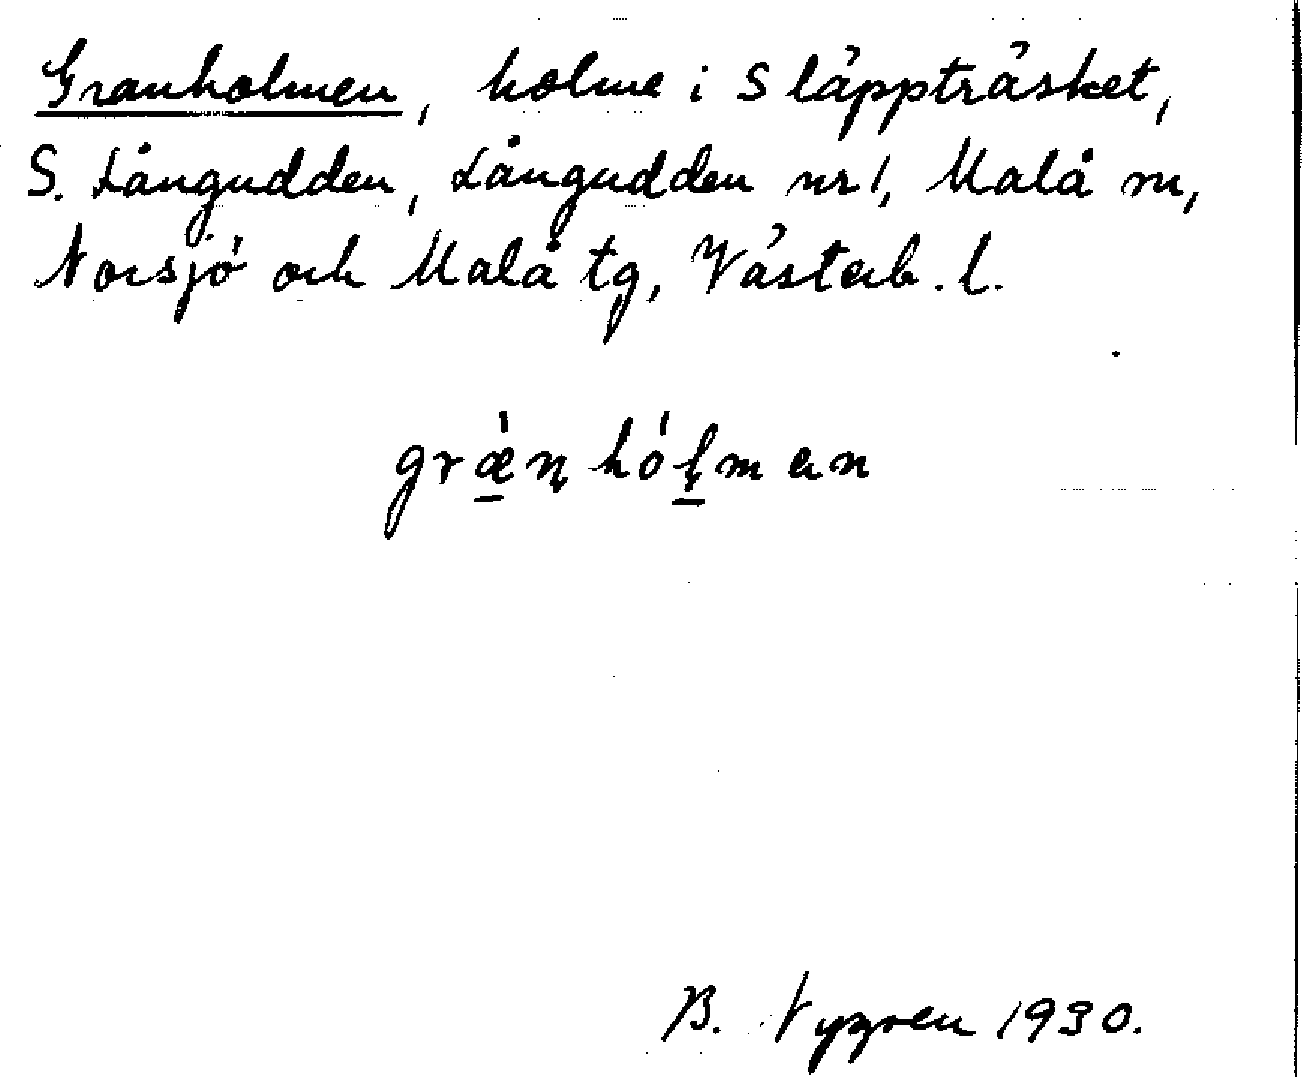 Granholmen, holme i Släppträsket,
S. Långudden, Långudden nr 1, Malå sn,
Norsjö och Malå tg, Västerb. l.
græ̀n hólmen
B. Nygren 1930.